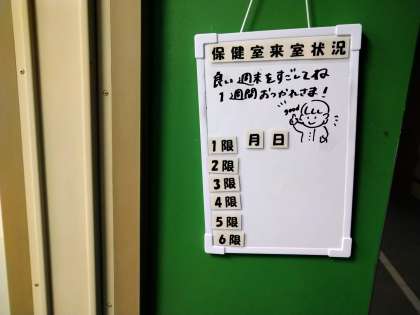 保健室来室状況
良い週末をすごしてね
1週間おつかれさま!
good
月 日
1限
2限
3限
4限
5限
6限